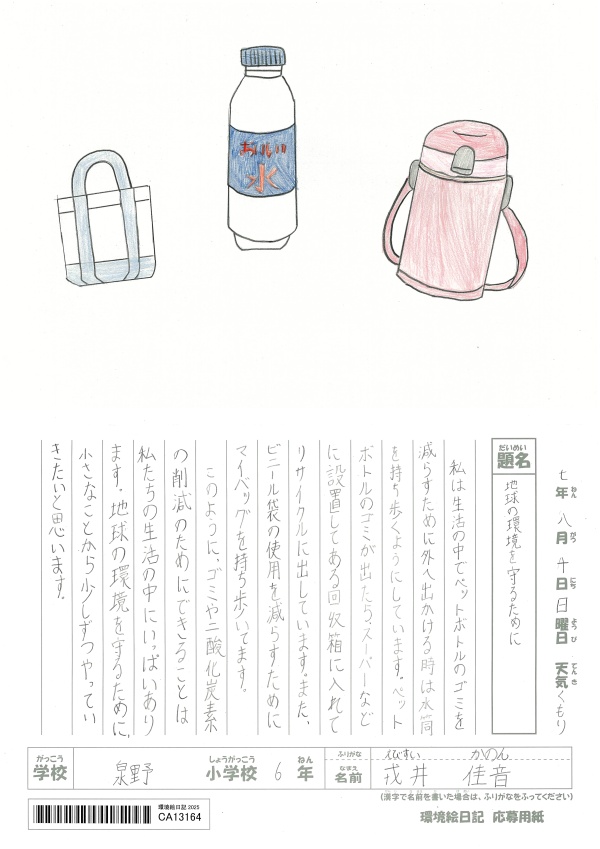 おいしい
水
七年 八月 十日 日曜日 天気 くもり
ねん がつ にち ようび てんき
だいめい
題名
地球の環境を守るために
私は生活の中でペットボトルのゴミを
減らすために外へ出かける時は水筒
を持ち歩くようにしています。ペット
ボトルのゴミが出たら、スーパーなど
に設置してある回収箱に入れて
リサイクルに出しています。また、
ビニール袋の使用を減らすために
マイバッグを持ち歩いてます。
このように、ゴミや二酸化炭素
の削減のためにできることは
私たちの生活の中にいっぱいあり
ます。地球の環境を守るために、
小さなことから少しずつやってい
きたいと思います。
がっこう
学校
泉野
しょうがっこう
小学校
6
ねん
年
ふりがな
えびすい かのん
なまえ
名前
戎井 佳音
(漢字で名前を書いた場合は、ふりがなをふってください)
環境絵日記 2025
CA13164
環境絵日記 応募用紙